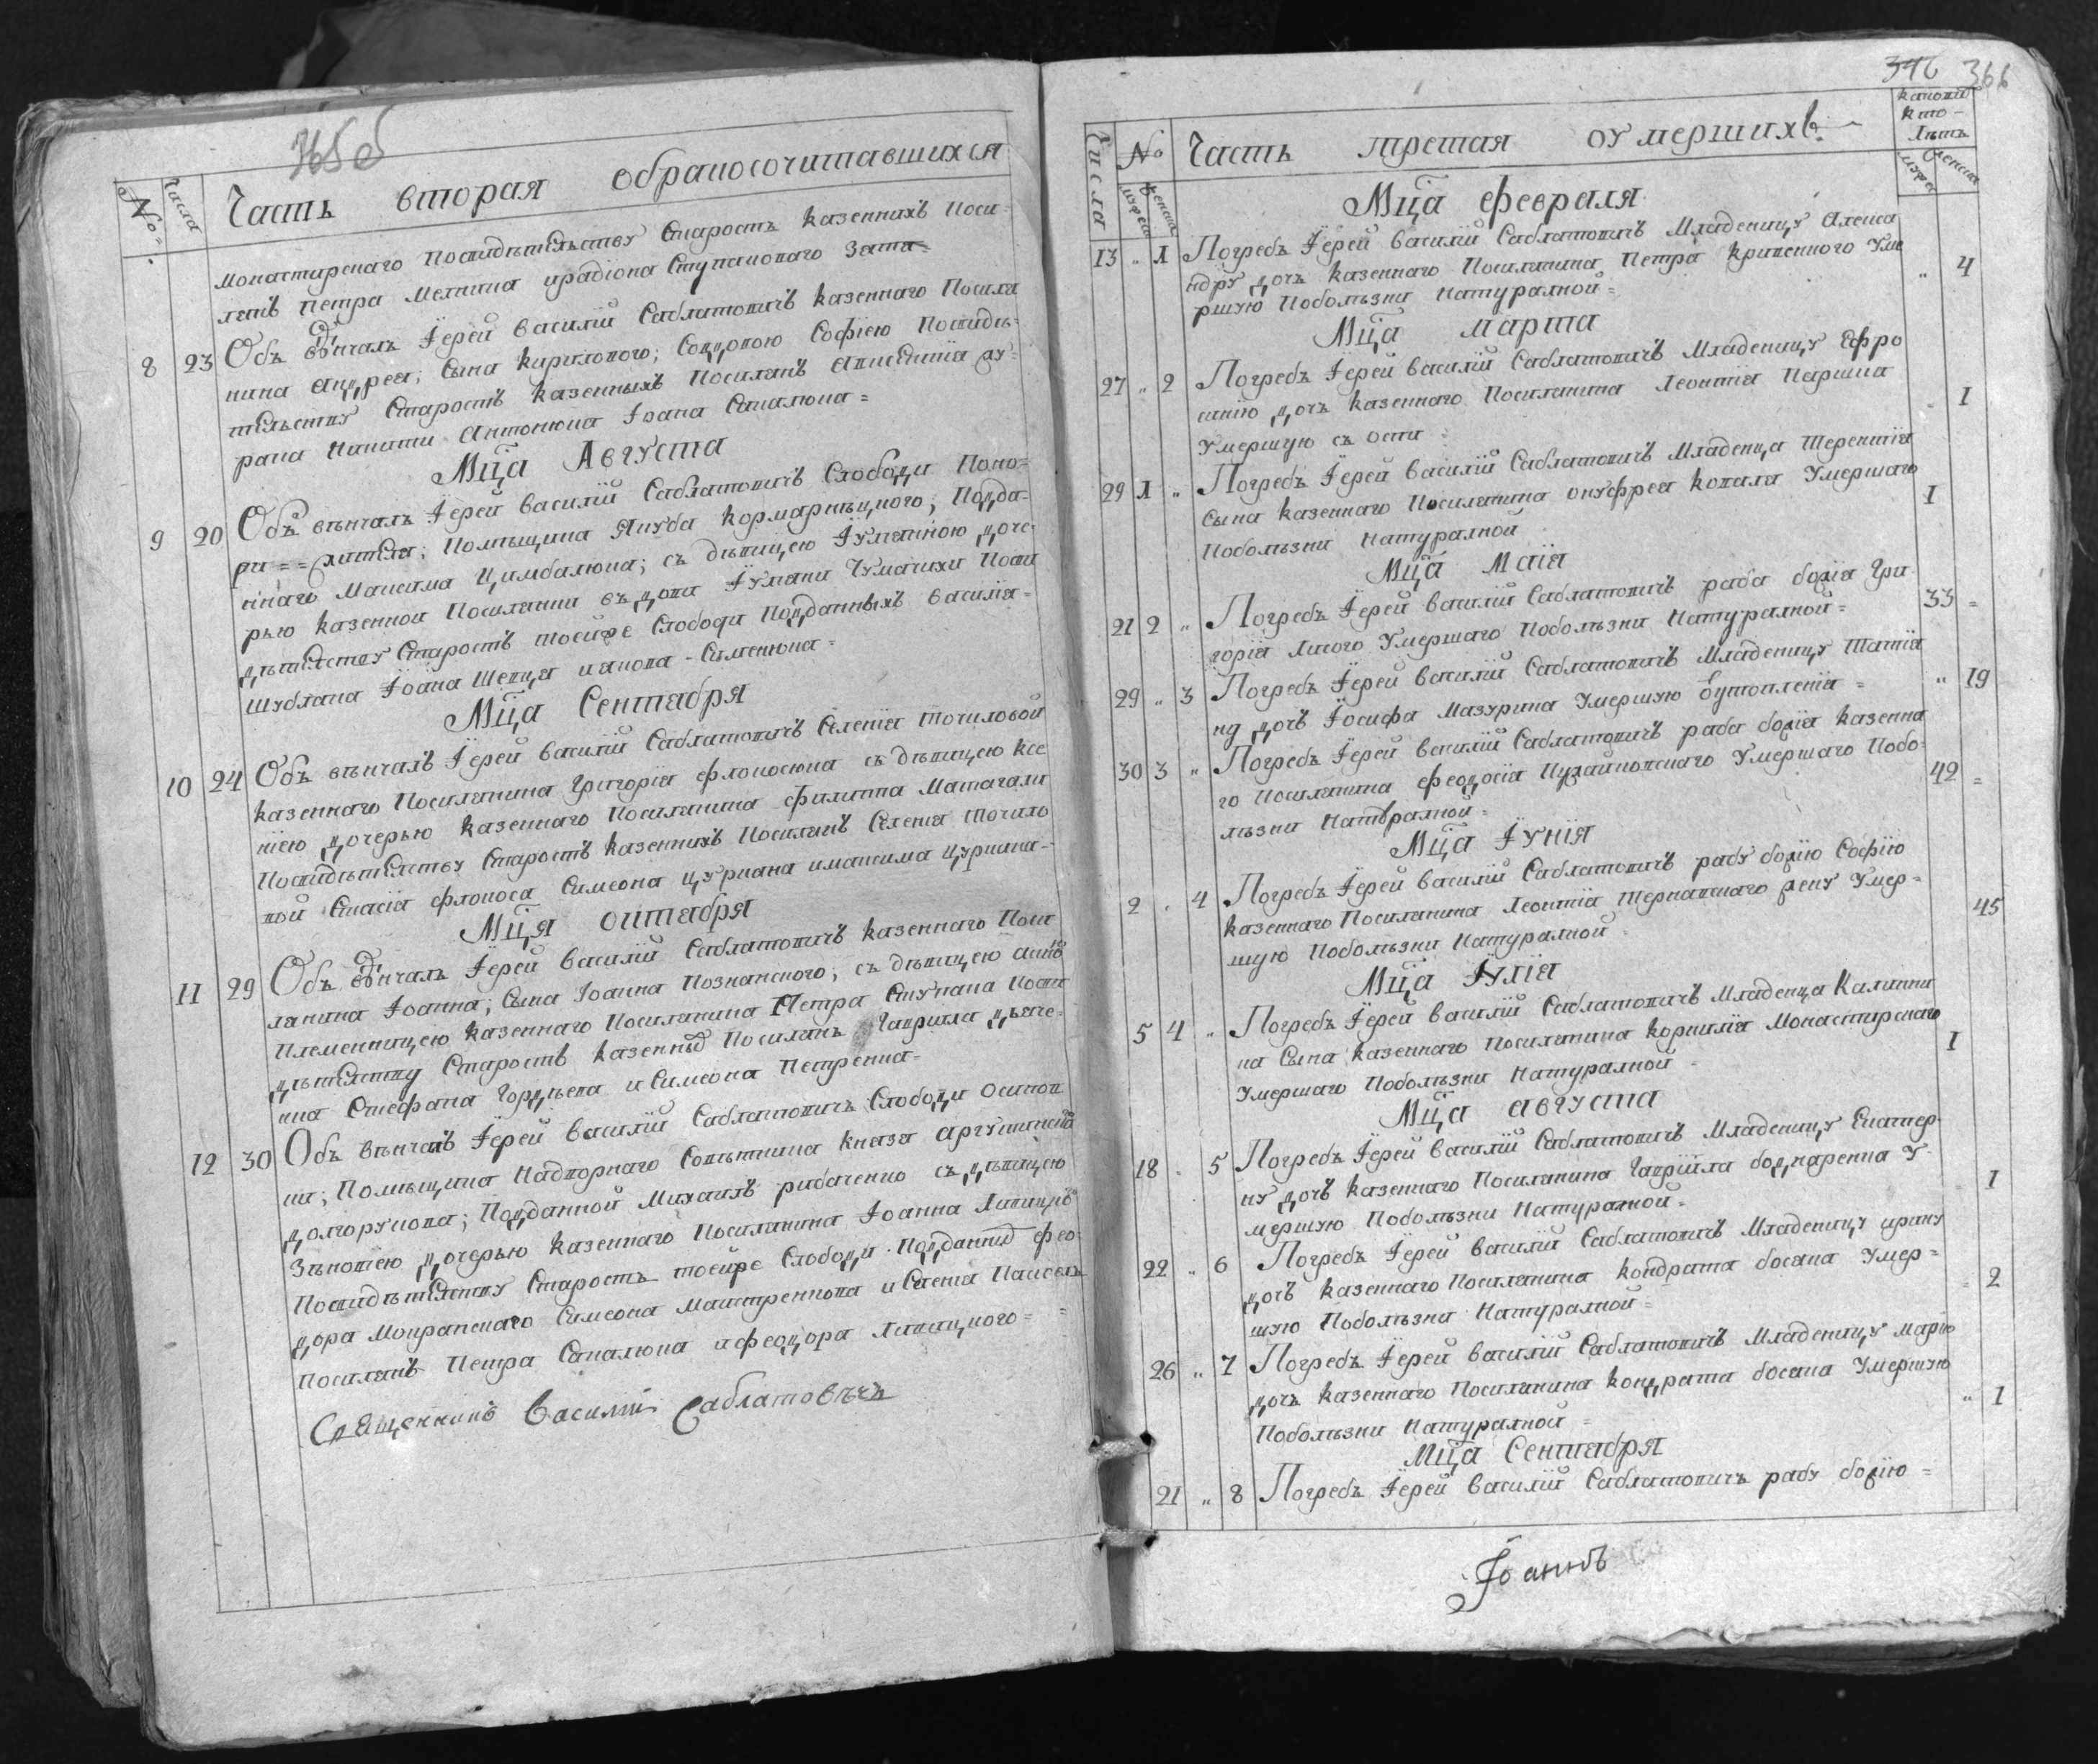 365 об
No
Числа
Часть вторая обракосочитавшихся
монастирскаго Посвидѣтельству Старостъ казеннихъ Посе-
лянъ Петра Мелника ирадіона Ступаковаго
8 23 Объ вѣнчалъ Їерей василій Саблатовичъ казеннаго Посиля
нина андрея; Сына кирилового; Софіею Посвидѣ-
тельству Старостъ казенныхъ Посилянъ
Никити Антонюка Їоана Сакалюка =
Мца Августа
9 20 Объ вѣнчалъ Їерей василій Саблатовичъ Слободи Поко-
жителя; Помѣщика Якуба кормарнѣцкого; Подда-
нного Максима Цимбалюка; съ дѣвицею Їулянною доче-
рью казенной Посилянки вдови Їуляни Чумачихи Посви
дѣтелству Старостъ тоейже Слободи Подданныхъ василія =
Шублака Їоана Шевця иякова - Сименюка =
Мца Сентабря
10 24 Объ вѣнчалъ Їерей василій Саблатовичъ Селенія точиловой
казеннаго Посилянина Григорія флокосюка съ дѣвицею ксе
нією дочерью казеннаго Посилянина филиппа Матагали
Посвидѣтелству Старостъ казеннихъ Посилянъ Селенія точило
вой Спасія флокоса Симеона цуркана имаксима цуркана =
Мця октабря
11 29 Объ вѣнчалъ Їерей василій Саблатовичъ казеннаго Посе
лянина Іоанна; Сына Іоанна Познанского; съ дѣвицею
Племенницею казеннаго Посилянина Петра Ступака Посви
дѣтелству Старостъ казенныхъ Посилянъ Гаврила дяче-
нка Стефана Гордѣева иСимеона Петренка =
12 30 Объ вѣнчалъ Їерей василій Саблатовичъ Слободи осипов
ки; Помѣщика Надворнаго Совѣтника Князя аргутинска
долгорукова; Подданной Михаилъ рибаченко съ дѣвицею
Зѣновією дочерью казеннаго Посилянина Іоанна
Посвидѣтелству Старостъ тоейже Слободи Подданныхъ фео
дора Мокранскаго Симеона Маистренкова иСеленія
Посилянъ Петра Сакалюка ифеодора =
Священникъ Василий Саблатовѣчъ
346 366
Числа
No
мужеск
женска
Часть третая оумершихъ
каковы
кто
Лѣтъ
мужеск
женска
Мца февраля
13 „ 1 Погребъ Їерей василій Саблатовичъ Младеницу Алекса
ндру дочь казеннаго Посилянина Петра Криленного Уме
ршую Поболѣзни Натуралной = „ 4
Мца марта
27 „ 2 Погребъ Їерей василій Саблатовичъ Младеницу Ефро
синію дочь казеннаго Посилянина Леонтія
Умершую съ оспи 1
29 1 „ Погребъ Їерей василій Саблатовичъ Младенца терентія
Сына казеннаго Посилянина онуфрея коваля Умершаго
Поболѣзни Натуралной 1
Мца Маїа
21 2 „ Погребъ Їерей василій Саблатовичъ раба божія Гри
горія Умершаго Поболѣзни Натуралной = 33 =
29 „ 3 Погребъ Їерей василій Саблатовичъ Младеницу татїа
ну дочь Їосифа Мазурика Умершую Оутопленія = „ 19
30 3 „ Погребъ Їерей василій Саблатовичъ раба божія казенна
го Посилянина феодосія Умершаго Побо-
лѣзни Натуралной = 42 =
Мца Їунїя
2 „ 4 Погребъ Їерей василій Саблатовичъ рабу божію Софїю
казеннаго Посилянина Леонтія жену Умер =
шую Поболѣзни Натуралной 45
Мца Їулїя
5 4 „ Погребъ Їерей василій Саблатовичъ Младенца Калинни
ка Сына казеннаго Посилянина корнилія Монастирскаго
Умершаго Поболѣзни Натуралной - 1
Мца августа
18 „ 5 Погребъ Їерей василій Саблатовичъ Младеницу Екатер
ну дочь казеннаго Посилянина Гаврїила боднаренка У
мершую Поболѣзни Натуралной = 1
22 „ 6 Погребъ Їерей василій Саблатовичъ Младеницу ирину
дочь казеннаго Посилянина кондрата босака Умер =
шую Поболѣзни Натуралной = 2
26 „ 7 Погребъ Їерей василій Саблатовичъ Младеницу марію
дочь казеннаго Посилянина кондрата босака Умершую
Поболѣзни Натуралной = „ 1
Мца Сентабря
21 „ 8 Погребъ Їерей василій Саблатовичъ рабу божію =
Їоаннъ